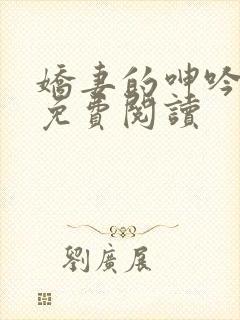 嬌妻的呻吟
免費閱讀
劉廣展